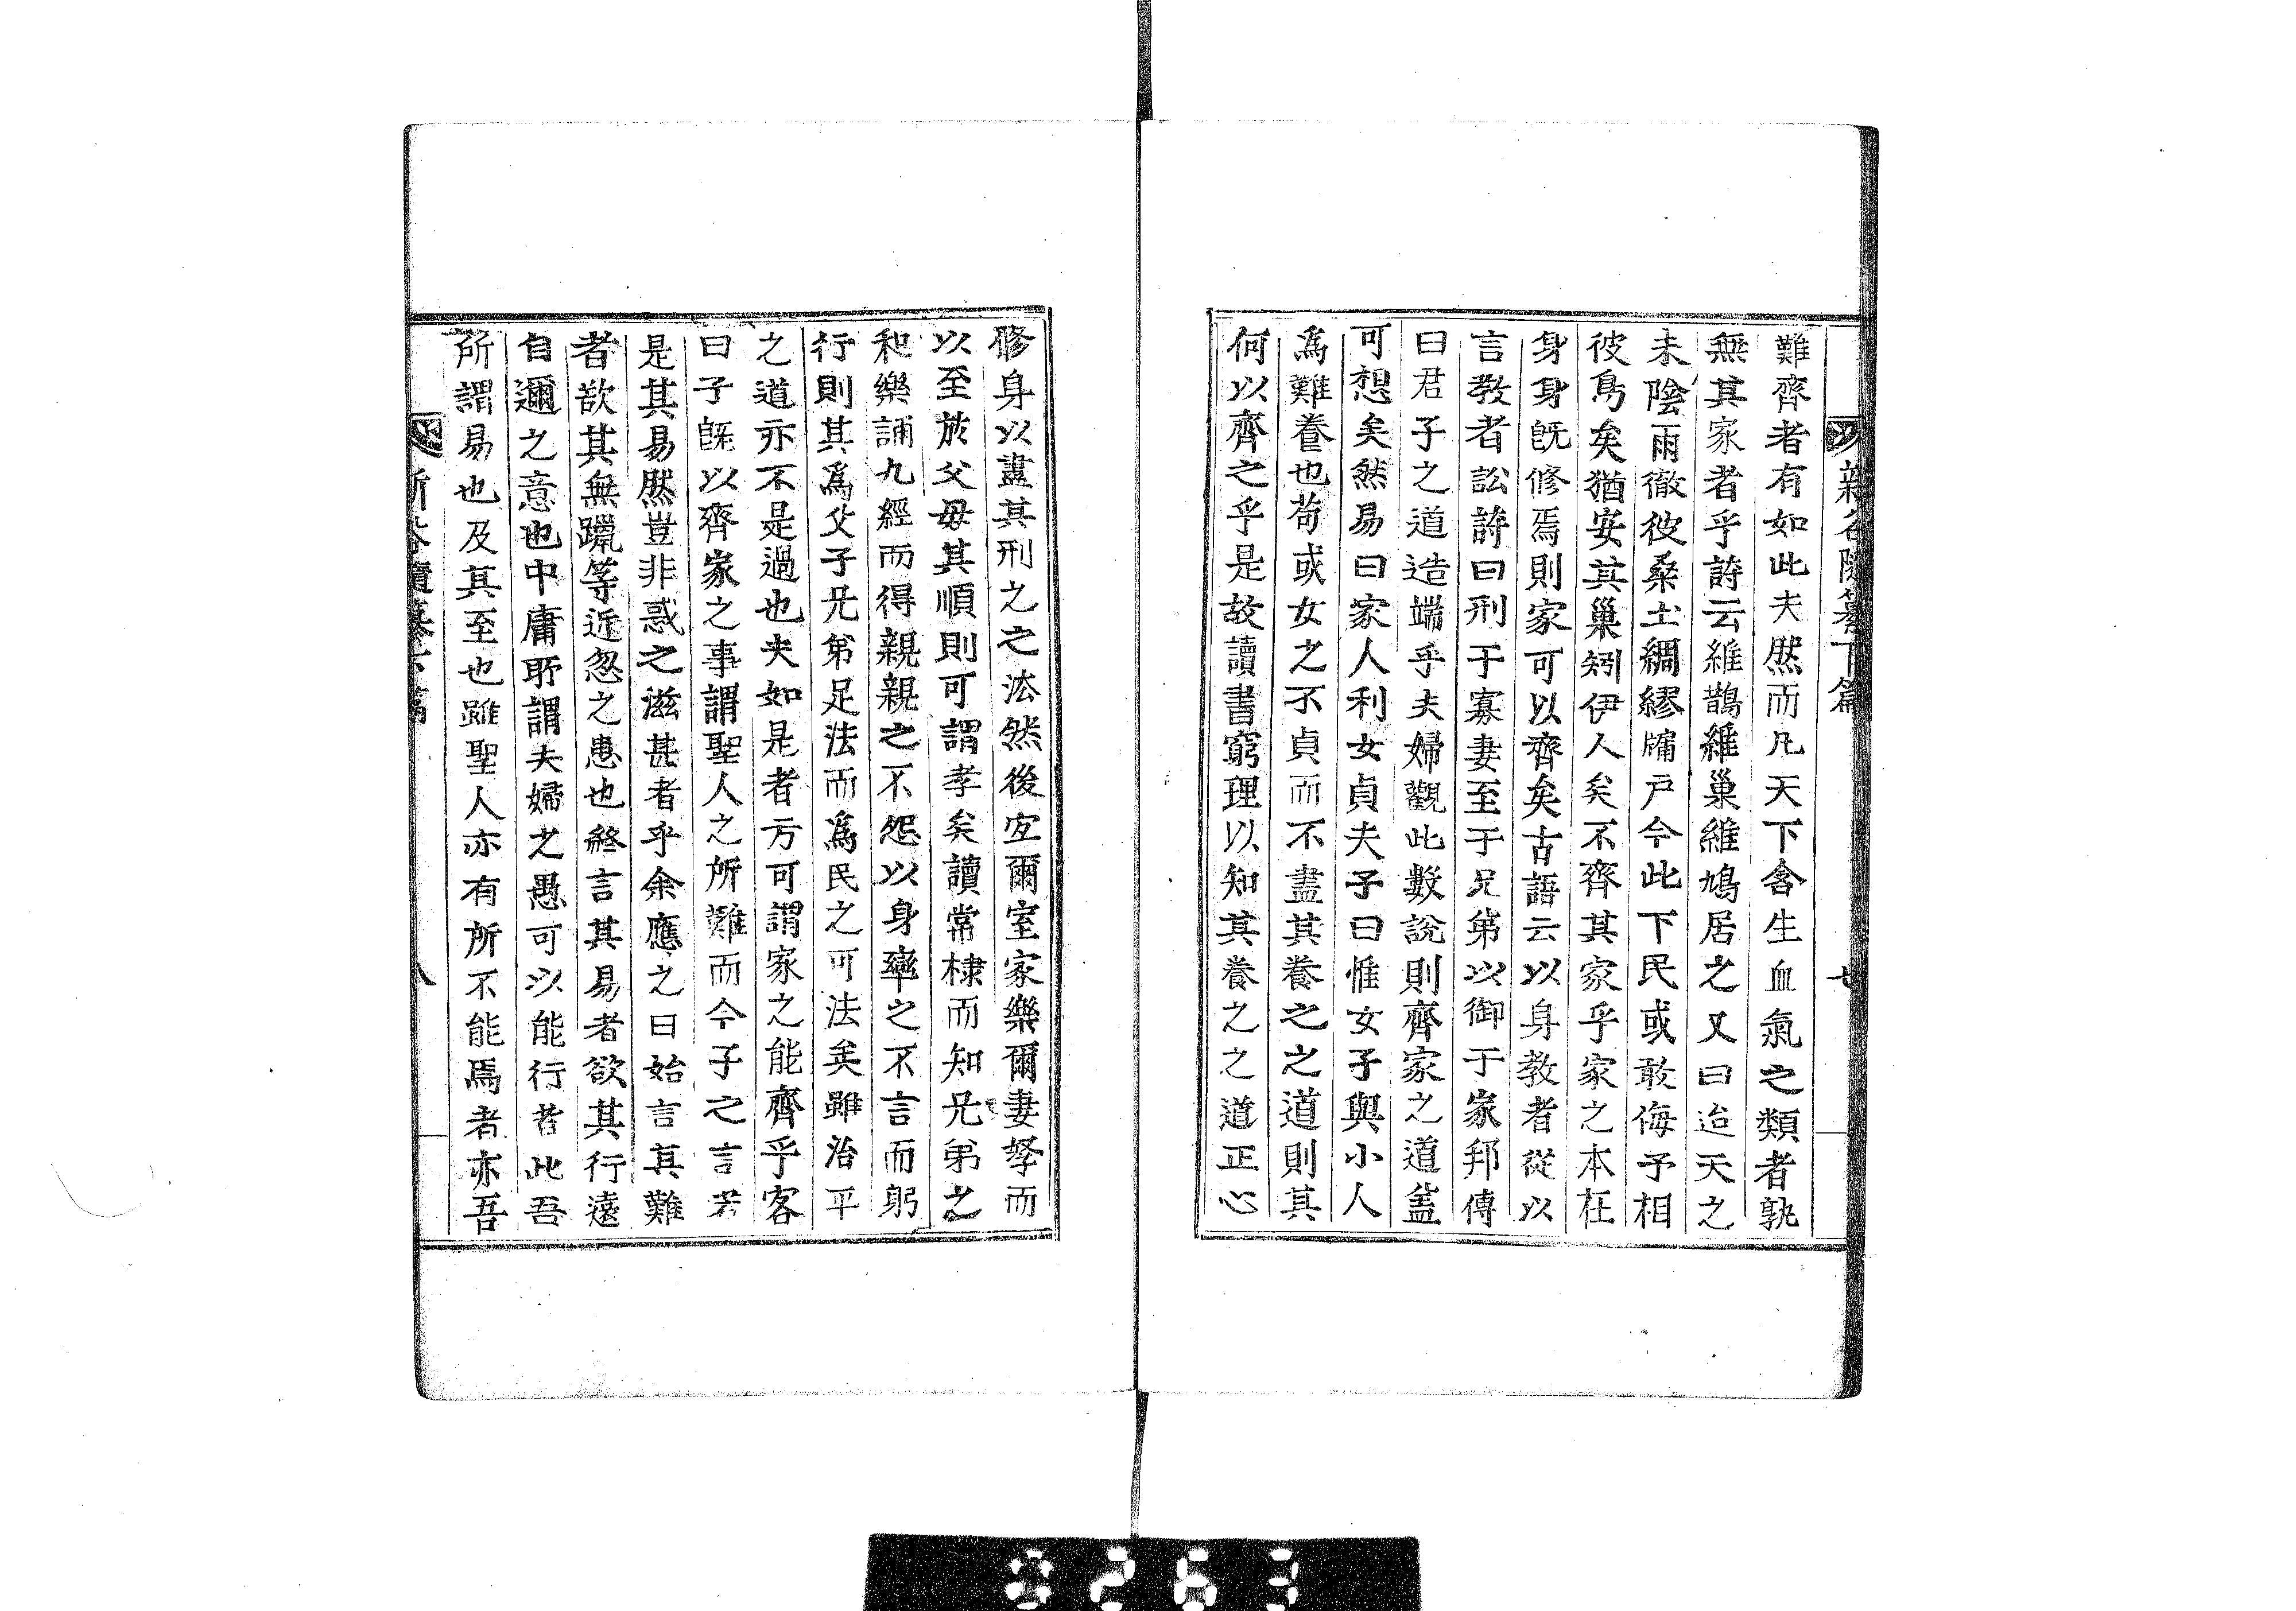 難齊者有如此夫然而凡天下含生血氣之類者孰
無其家者乎詩云維鵲維巢維鳩居之又曰迨天之
未陰雨徹彼桑土綢繆牖戶今此下民或敢侮予相
彼鳥矣猶安其巢矧伊人矣不齊其家乎家之本在
身身旣修焉則家可以齊矣古語云以身敎者從以
言敎者訟詩曰刑于寡妻至于兄弟以御于家邦傳
曰君子之道造端乎夫婦觀此數說則齊家之道盖
可想矣然易曰家人利女貞夫子曰惟女子與小人
爲難養也苟或女之不貞而不盡其養之之道則其
何以齊之乎是故讀書窮理以知其養之之道正心
修身以盡其刑之之法然後宜爾室家樂爾妻孥而
以至於父母其順則可謂孝矣讀常棣而知兄弟之
和樂誦九經而得親親之不怨以身率之不言而躬
行則其爲父子兄弟足法而爲民之可法矣雖治平
之道亦不是過也夫如是者方可謂家之能齊乎客
曰子旣以齊家之事謂聖人之所難而今子之言若
是其易然豈非惑之滋甚者乎余應之曰始言其難
者欲其無躐等近忽之患也終言其易者欲其行遠
自邇之意也中庸所謂夫婦之愚可以能行者此吾
所謂易也及其至也雖聖人亦有所不能焉者亦吾